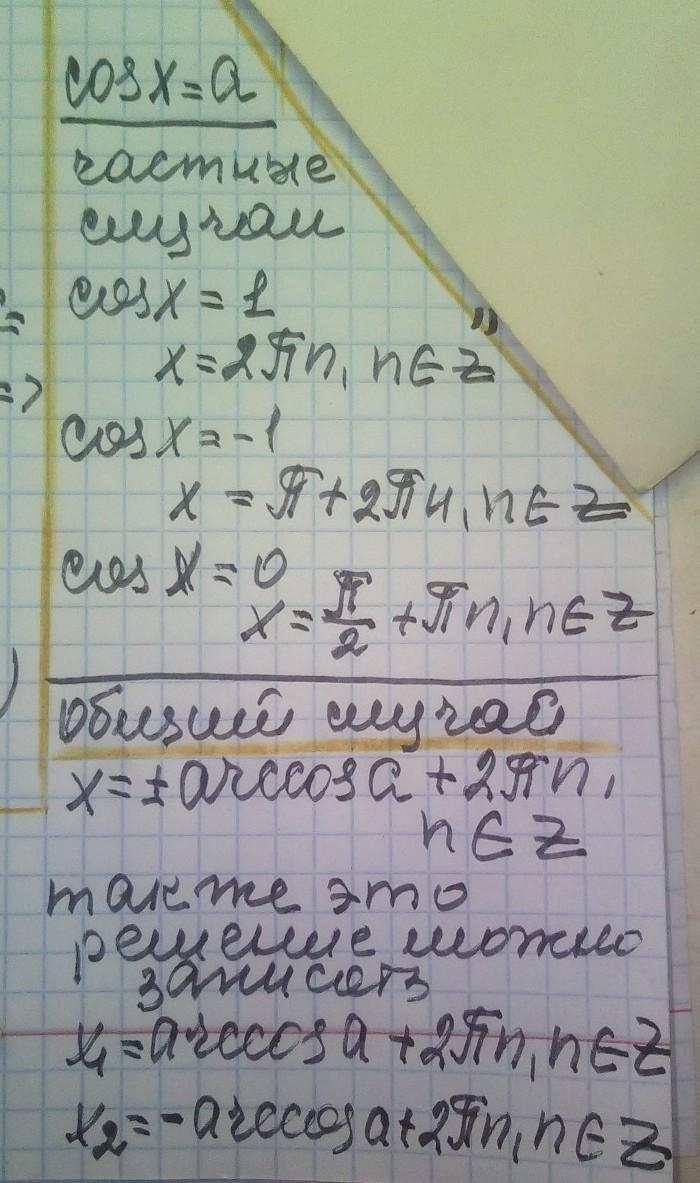 cos x = a
частные
случаи
cos x = 1
x = 2πn, n ∈ Z
cos x = -1
x = π + 2πn, n ∈ Z
cos x = 0
x = π/2 + πn, n ∈ Z
общий случай
x = ± arccos a + 2πn,
n ∈ Z
также это
решение можно
записать
x₁ = arccos a + 2πn, n ∈ Z
x₂ = - arccos a + 2πn, n ∈ Z